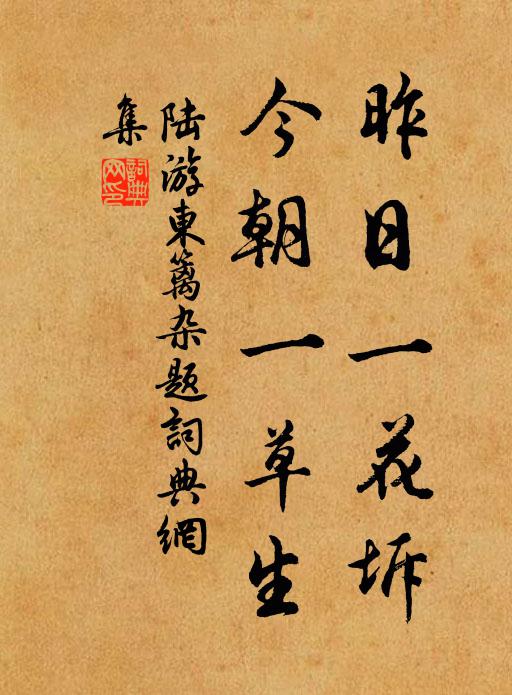 昨日一花坼
今朝一草生
陆游東籬杂题詞典網
集
詞典網印